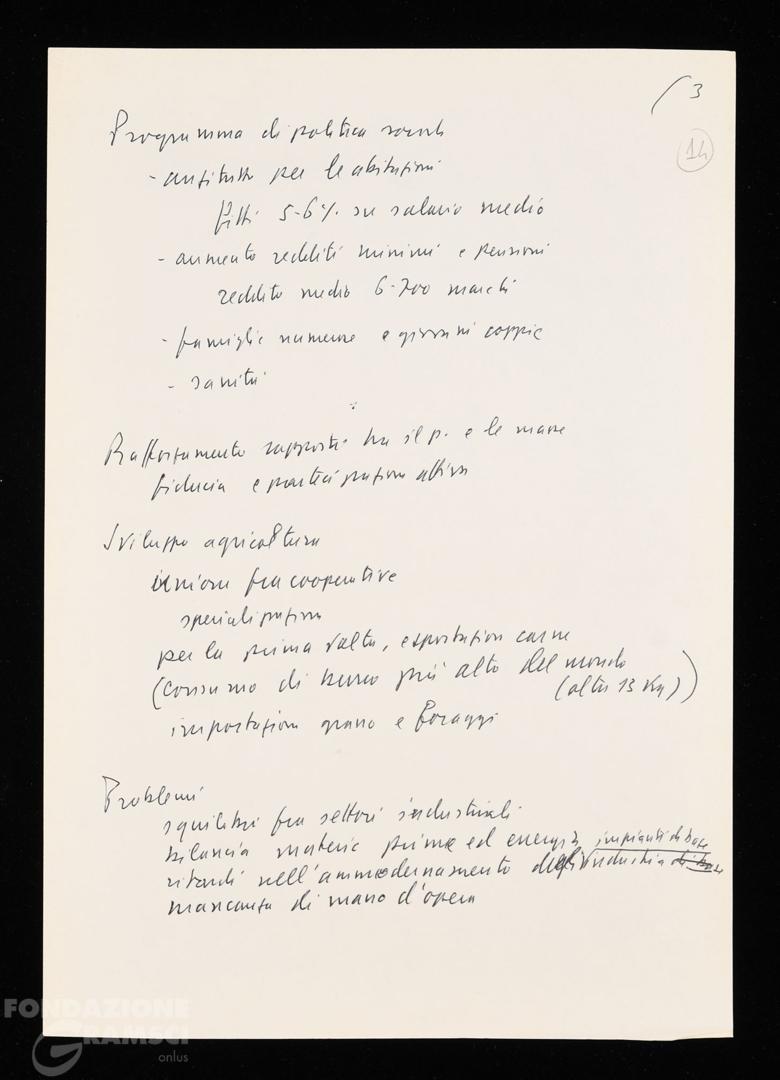 3
14
Programma di politica sociale
- anzitutto per le abitazioni
fitti 5-6% su salario medio
- aumento redditi minimi e pensioni
reddito medio 6-700 marchi
- famiglie numerose e giovani coppie
- sanità
Rafforzamento rapporti tra il p. e le masse
fiducia e partecipazione attiva
Sviluppo agricoltura
unioni fra cooperative
specializzazione
per la prima volta, esportazion carne
(consumo di burro più alto del mondo
(oltre 13 Kg))
importazioni grano e foraggi
Problemi
squilibri fra settori industriali
bilancia materie prime ed energia
impianti di base
ritardi nell'ammodernamento degli industria di base
mancanza di mano d'opera
FONDAZIONE
GRAMSCI
onlus